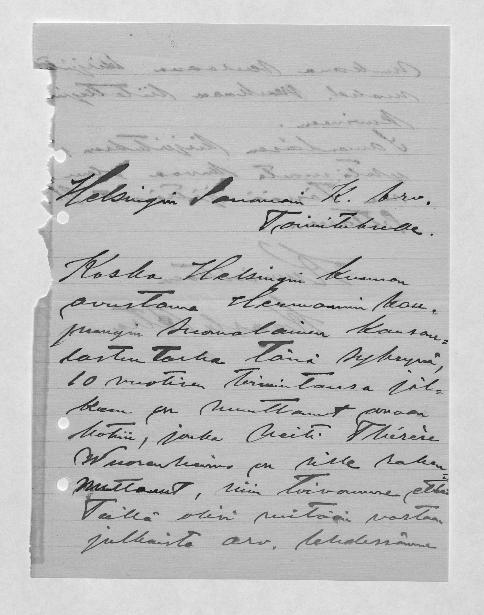 Helsingin Sanomain K. Arv.
Toimitukselle.
Koska Helsingin kunnan
avustama Hermannin kau-
pungin Suomalainen Kansan=
lastentarha tänä syksynä,
10 vuotisen toimintansa jäl=
keen on muuttanut omaan
kotiin, jonka Neiti Thérèse
on sille raken=
nuttanut, niin toivomme että
Teillä olisi mitään vastaan
julkaista arv. lehdessänne